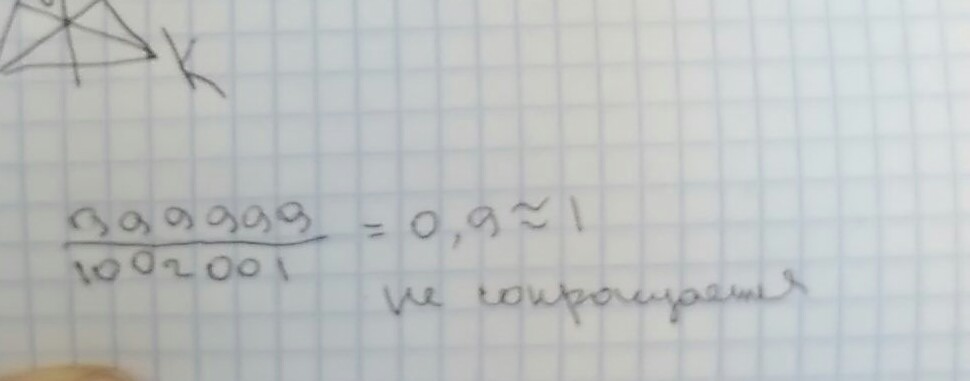 K
999999 = 0,9 ≈ 1
1002001
не сокращается